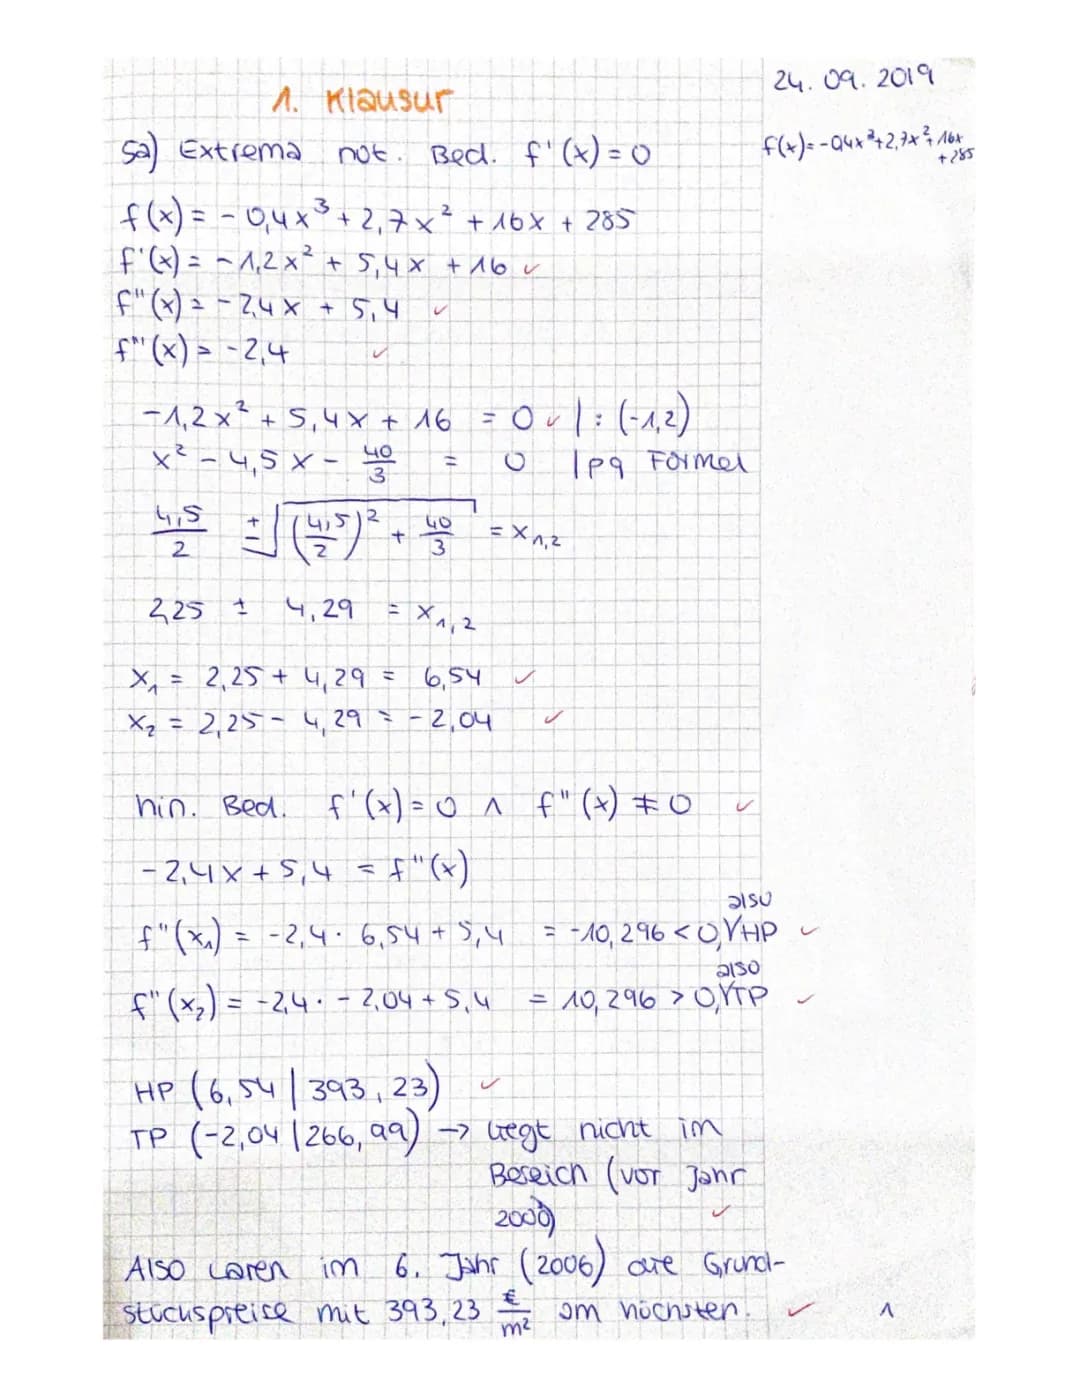 24. 09. 2019
1. Klausur
5a) Extrema not. Bed. f'(x) = 0
f(x) = -0,4x³+2,7x²+16x
+285
f(x) = -0,4x³ + 2,7x² + 16x + 285
f'(x) = -1,2x² + 5,4x + 16 ✓
f"(x) = -2,4x + 5,4 ✓
f'''(x) = -2,4 ✓
-1,2x² + 5,4x + 16 = 0 ✓ | : (-1,2)
x² - 4,5x - 40/3 = 0 | pq Formel
4,5/2 ± √((4,5/2)² + 40/3) = x1,2
2,25 ± 4,29 = x1,2
x1 = 2,25 + 4,29 = 6,54 ✓
x2 = 2,25 - 4,29 = -2,04 ✓
hin. Bed. f'(x) = 0 ∧ f"(x) ≠ 0 ✓
-2,4x + 5,4 = f"(x)
f"(x1) = -2,4 · 6,54 + 5,4 = -10,296 < 0, also HP ✓
f"(x2) = -2,4 · -2,04 + 5,4 = 10,296 > 0, also TP ✓
HP (6,54 | 393,23) ✓
TP (-2,04 | 266,99) → liegt nicht im
Bereich (vor Jahr
2000) ✓
Also waren im 6. Jahr (2006) die Grund-
stückspreise mit 393,23 €/m² am höchsten. ✓ 1